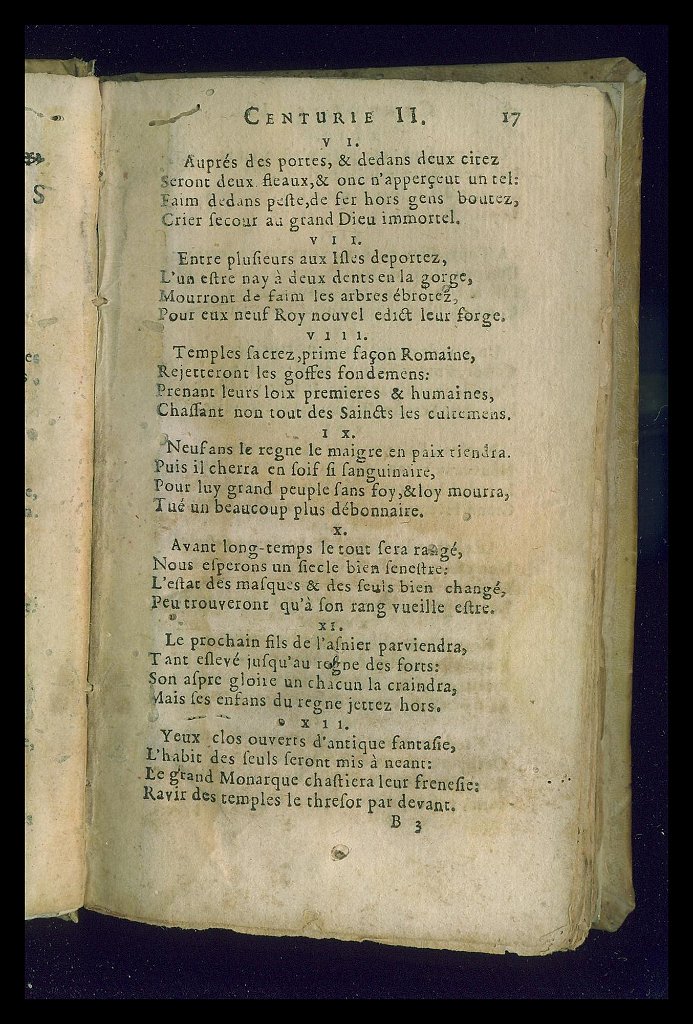 CENTURIE II. 17
VI.
Auprés des portes, & dedans deux citez
Seront deux fleaux,& onc n'apperçeut un tel:
Faim dedans peſte,de fer hors gens boutez,
Crier ſecour au grand Dieu immortel.
VII.
Entre pluſieurs aux Iſles deportez,
L'un eſtre nay à deux dents en la gorge,
Mourront de faim les arbres ébrotez,
Pour eux neuf Roy nouvel edict leur forge.
VIII.
Temples ſacrez,prime façon Romaine,
Rejetteront les goffes fondemens:
Prenant leurs loix premieres & humaines,
Chaſſant non tout des Saincts les cultemens.
IX.
Neuf ans le regne le maigre en paix tiendra.
Puis il cherra en ſoif ſi ſanguinaire,
Pour luy grand peuple ſans foy,&loy mourra,
Tué un beaucoup plus débonnaire.
X.
Avant long-temps le tout ſera rangé,
Nous eſperons un ſiecle bien ſeneſtre:
L'eſtat des maſques & des ſeuls bien changé,
Peu trouveront qu'à ſon rang vueille eſtre.
XI.
Le prochain fils de l'aſnier parviendra,
Tant eſlevé juſqu'au regne des forts:
Son aſpre gloire un chacun la craindra,
Mais ſes enfans du regne jettez hors.
XII.
Yeux clos ouverts d'antique fantaſie,
L'habit des ſeuls ſeront mis à neant:
Le grand Monarque chaſtiera leur freneſie:
Ravir des temples le threſor par devant.
B 3